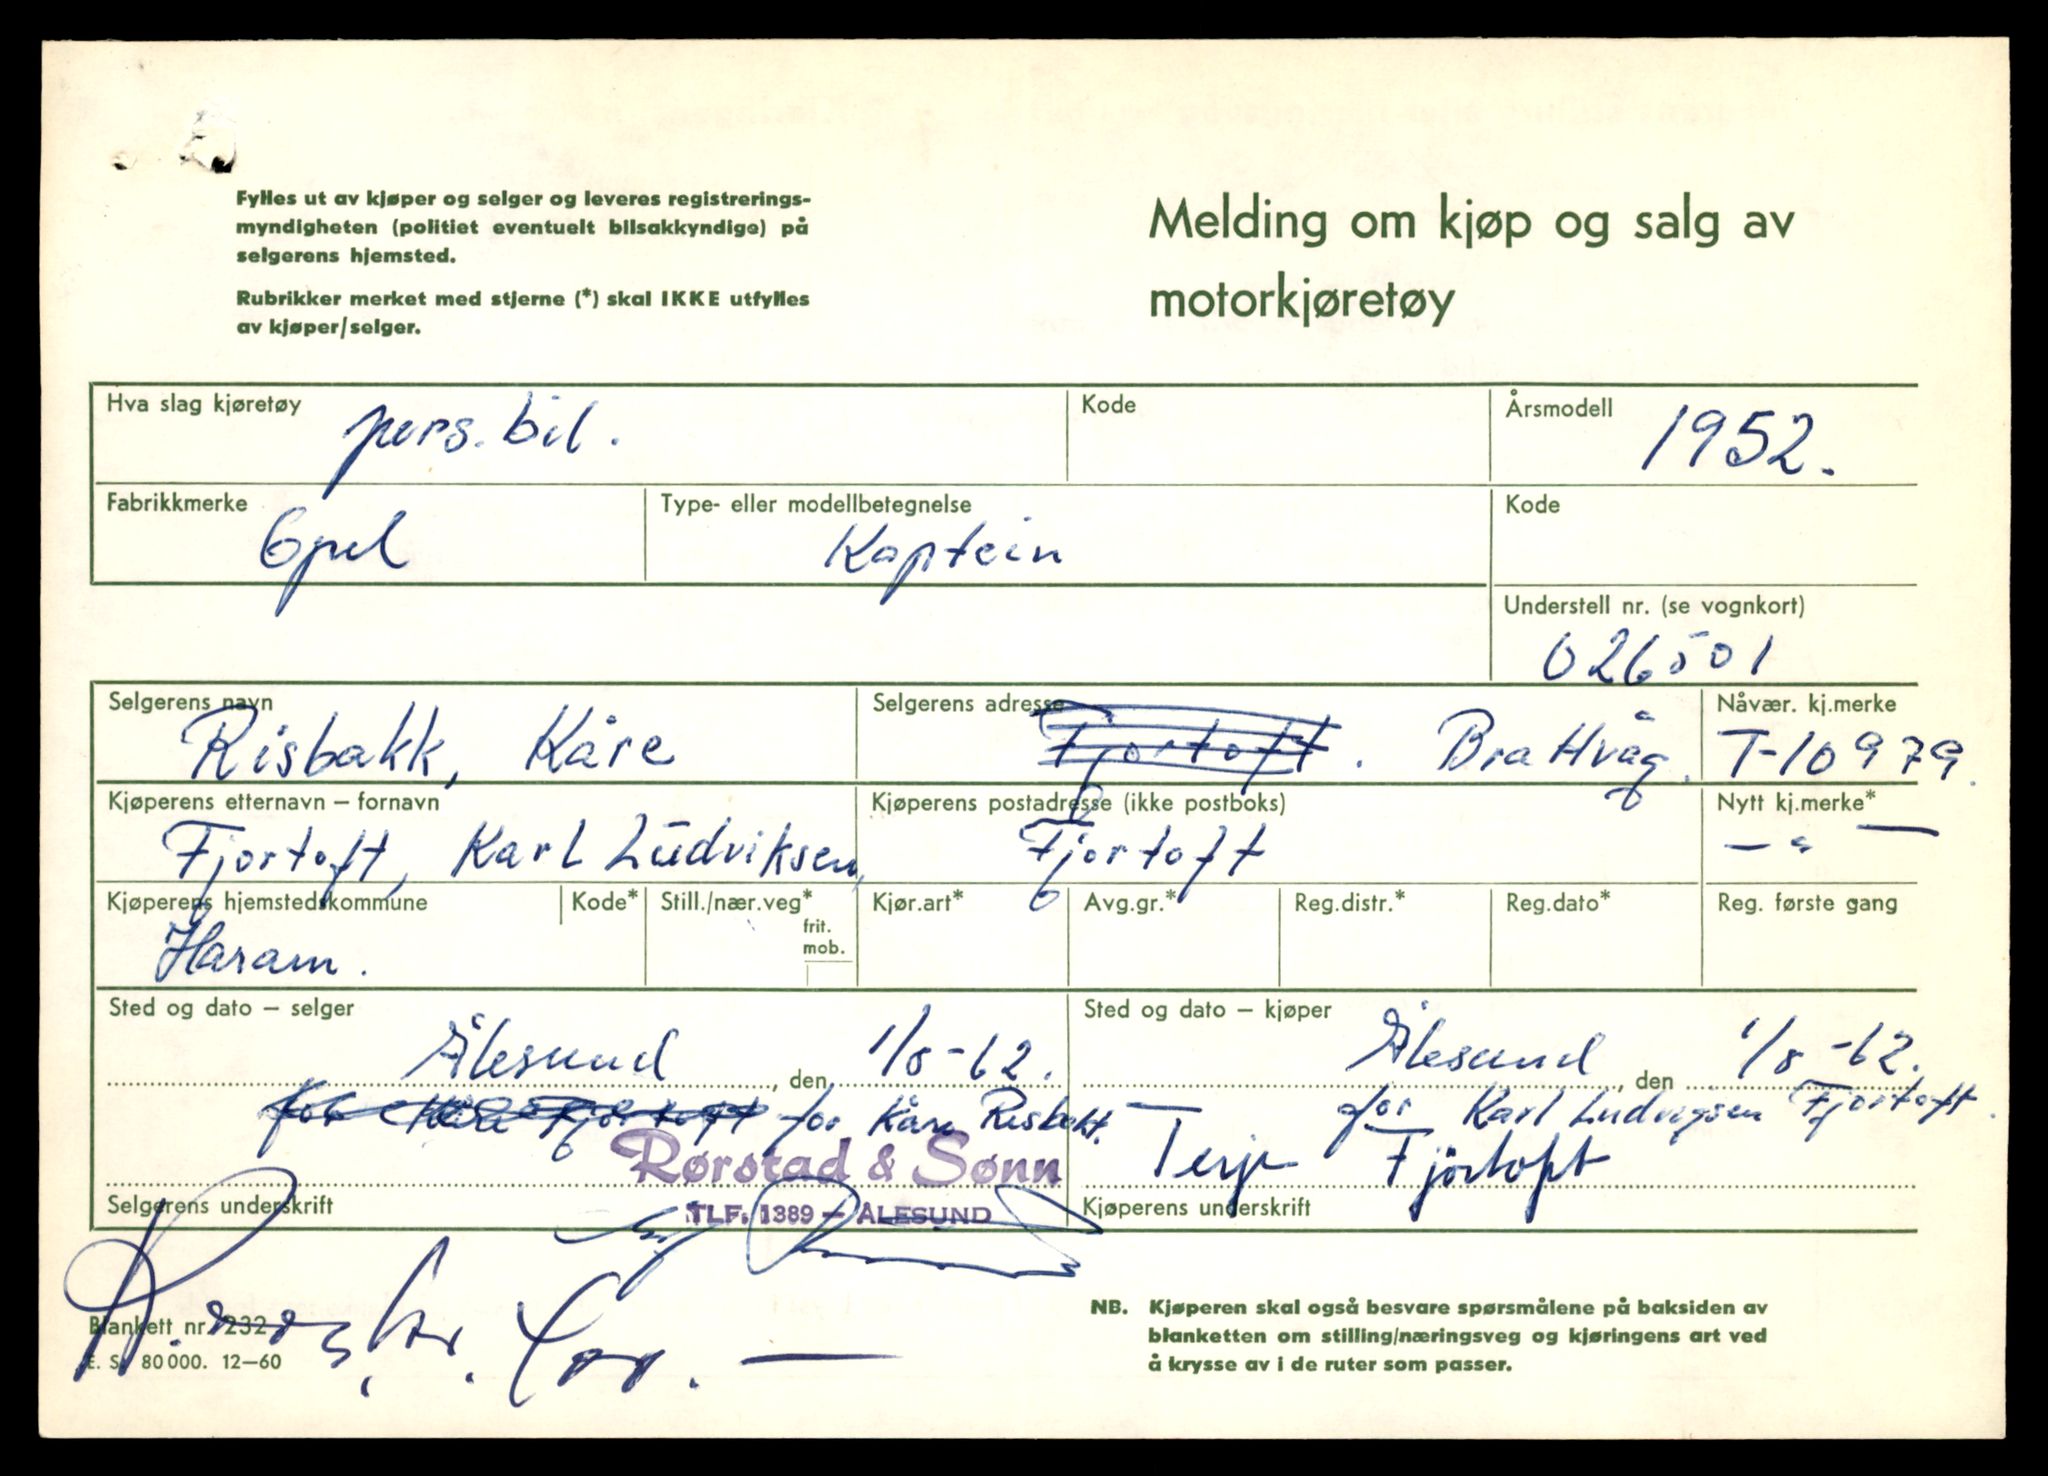 Fylles ut av kjøper og selger og leveres registrerings-
myndigheten (politiet eventuelt bilsakkyndige) på
selgerens hjemsted.
Rubrikker merket med stjerne (*) skal IKKE utfylles
av kjøper/selger.
Melding om kjøp og salg av
motorkjøretøy
Hva slag kjøretøy
pers. bil.
Kode
Årsmodell
1952.
Fabrikkmerke
Opel
Type- eller modellbetegnelse
Kaptein
Kode
Understell nr. (se vognkort)
026501
Selgerens navn
Risbakk, Kåre
Selgerens adresse
Fjortoft. Brattvåg.
Nåvær. kj.merke
T-10979.
Kjøperens etternavn – fornavn
Fjortoft, Karl Ludviksen,
Kjøperens postadresse (ikke postboks)
Fjortoft
Nytt kj.merke*
— " —
Kjøperens hjemstedskommune
Haram.
Kode*
Still./nær.veg*
frit.
mob.
Kjør.art*
Avg.gr.*
Reg.distr.*
Reg.dato*
Reg. første gang
Sted og dato – selger
Ålesund, den 1/8-62.
for Kåre Risbakk.
Rørstad & Sønn
TLF. 1389 — ÅLESUND
Selgerens underskrift
Sted og dato – kjøper
Ålesund, den 1/8-62.
for Karl Ludvigsen Fjortoft.
Terje Fjørtoft
Kjøperens underskrift
Blankett nr. 232
E. S. 80 000. 12–60
NB. Kjøperen skal også besvare spørsmålene på baksiden av
blanketten om stilling/næringsveg og kjøringens art ved
å krysse av i de ruter som passer.